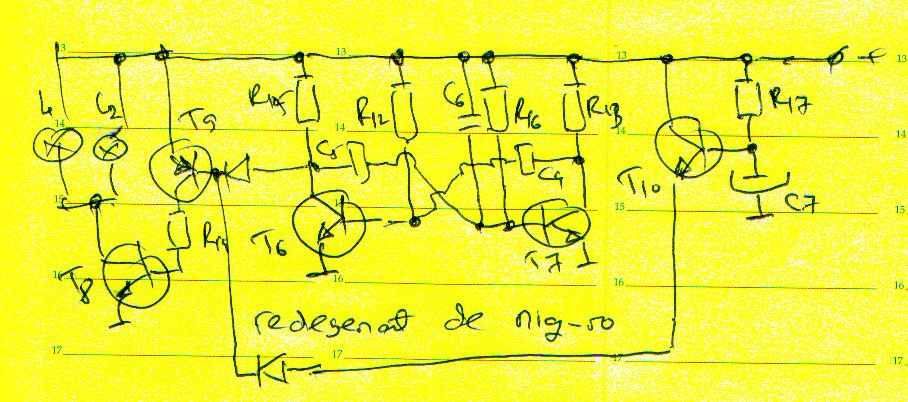 13 13 13 13
L1 L2 T9 R15 R12 C6 R16 R13 R17
14 14 14 14
C5 C4 T10 C7
15 15 15
R14 T6 T7
T8
16 16 16 16
redesenat de nig-ro
17 17 17 17